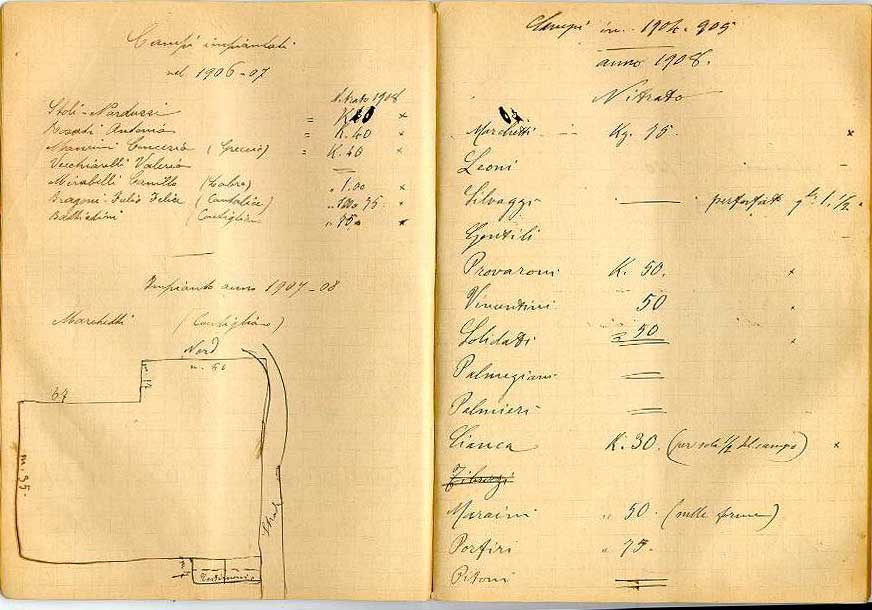 Campi impiantati
nel 1906-07
Nitrato 1908
Stoli-Narduzzi = K 40 ×
Rosati Antonio = K. 40 ×
Mannini Concezio (Greccio) = K. 40 ×
Vecchiarelli Valerio —
Mirabelli Camillo (Labro) „ 1.00 ×
Fragoni Julio Felice (Cantalice) „ 75 ×
Battistini (Contigliano „ 75 ×
Impianto anno 1907-08
Marchetti (Contigliano)
Nord
m. 50
64
m. 95
Strada
Testimonio
Campi in 1904-905
anno 1908.
Nitrato
Marchetti Kg. 75. ×
Leoni
Silvaggi — perfosfato ql. 1.1/2
Gentili
Provaroni K. 50.
Vincentini 50
Solidati = 50
Palmegiani =
Palmieri =
Cianca K. 30. (per sola 1/2 del campo) ×
Maraini „ 50. (nelle forme)
Porfiri „ 75.
Pitoni =